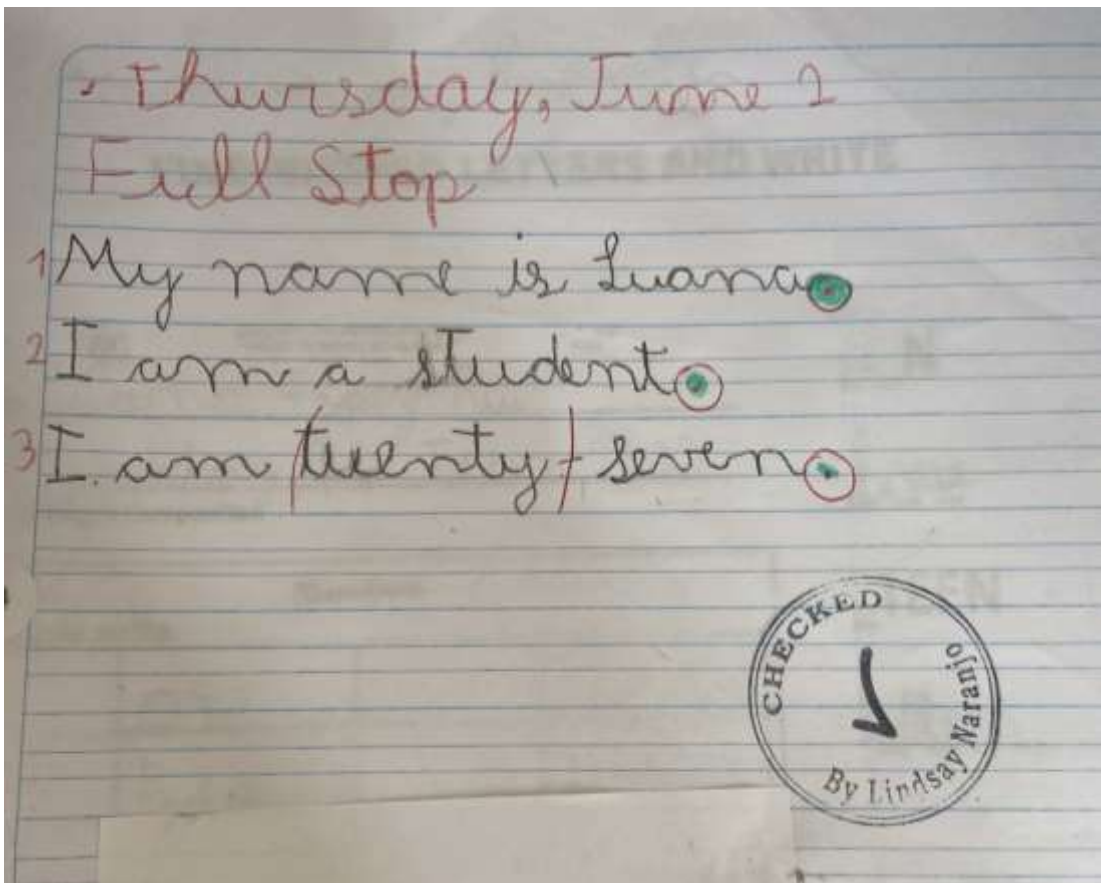 Thursday, June 2
Full Stop
1 My name is Luana.
2 I am a student.
3 I. am twenty-seven.
CHECKED
By Lindsay Naranjo